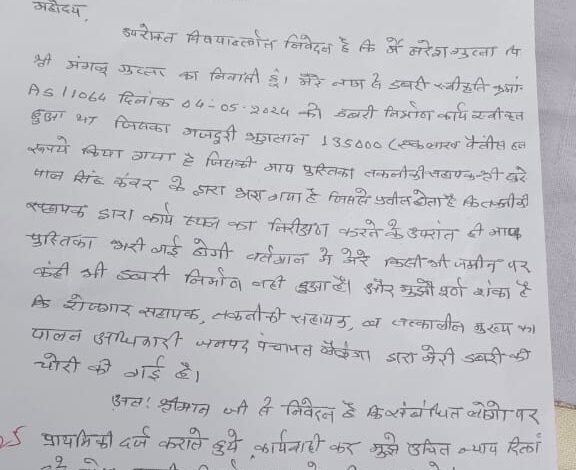 महोदय,
उपरोक्त विषयान्तर्गत निवेदन है कि मैं नरेश गुप्ता पि
श्री मंगलू गुप्ता का निवासी हूं। मेरे नाम से डबरी स्वीकृति क्रमां-
AS 11064 दिनांक 04-05-2024 को डबरी निर्माण कार्य स्वीकृत
हुआ था जिसका मजदूरी भुगतान 135000 (एक लाख पैंतीस हजा
रूपये किया गया है जिसकी माप पुस्तिका तकनीकी सहायक श्री
पाल सिंह कंवर के द्वारा भरा गया है जिससे प्रतीत होता है कि तकनीकी
सहायक द्वारा कार्य स्थल का निरीक्षण करने के उपरांत ही माप
पुस्तिका भरी गई होगी वर्तमान में मेरे किसी भी जमीन पर
कंही भी डबरी निर्माण नही हुआ है। और मुझे पूर्ण शंका है
कि रोजगार सहायक, तकनीकी सहायक, व तत्कालीन मुख्य का
पालन अधिकारी जनपद पंचायत द्वारा मेरी डबरी की
चोरी की गई है।
अतः श्रीमान जी से निवेदन है कि संबंधित लोगो पर
प्राथमिकी दर्ज कराते हुये कार्यवाही कर मुझे उचित न्याय दिला